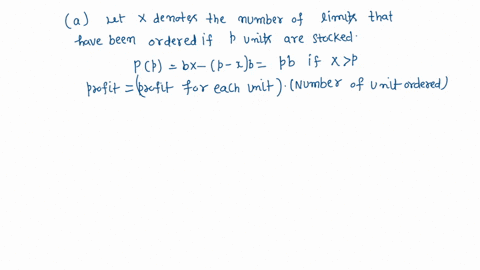 (a) Let x denotes the number of limits that
have been ordered if p units are stocked.
P(p) = bx - (p-x)b = pb if x>p
profit = (profit for each unit). (Number of unit ordered)